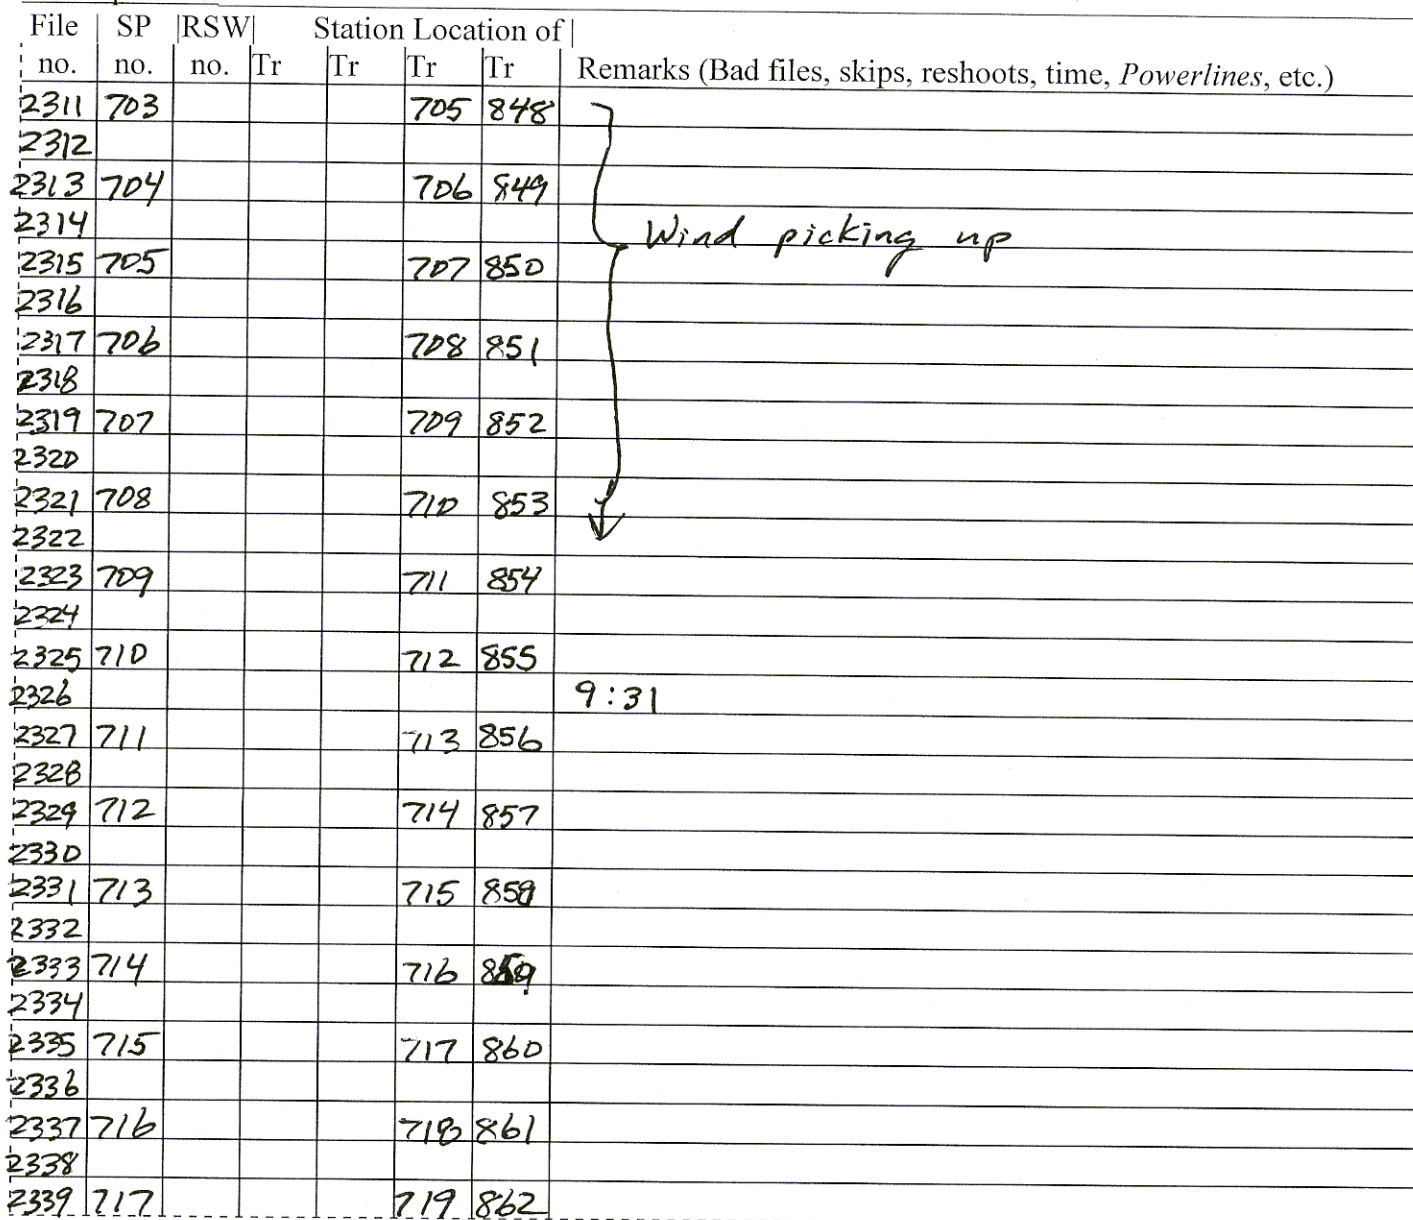 File SP RSW Station Location of
no. no. no. Tr Tr Tr Tr Remarks (Bad files, skips, reshoots, time, Powerlines, etc.)
2311 703 705 848
2312
2313 704 706 849
2314
Wind picking up
2315 705 707 850
2316
2317 706 708 851
2318
2319 707 709 852
2320
2321 708 710 853
2322
2323 709 711 854
2324
2325 710 712 855
2326 9:31
2327 711 713 856
2328
2329 712 714 857
2330
2331 713 715 858
2332
2333 714 716 859
2334
2335 715 717 860
2336
2337 716 718 861
2338
2339 717 719 862